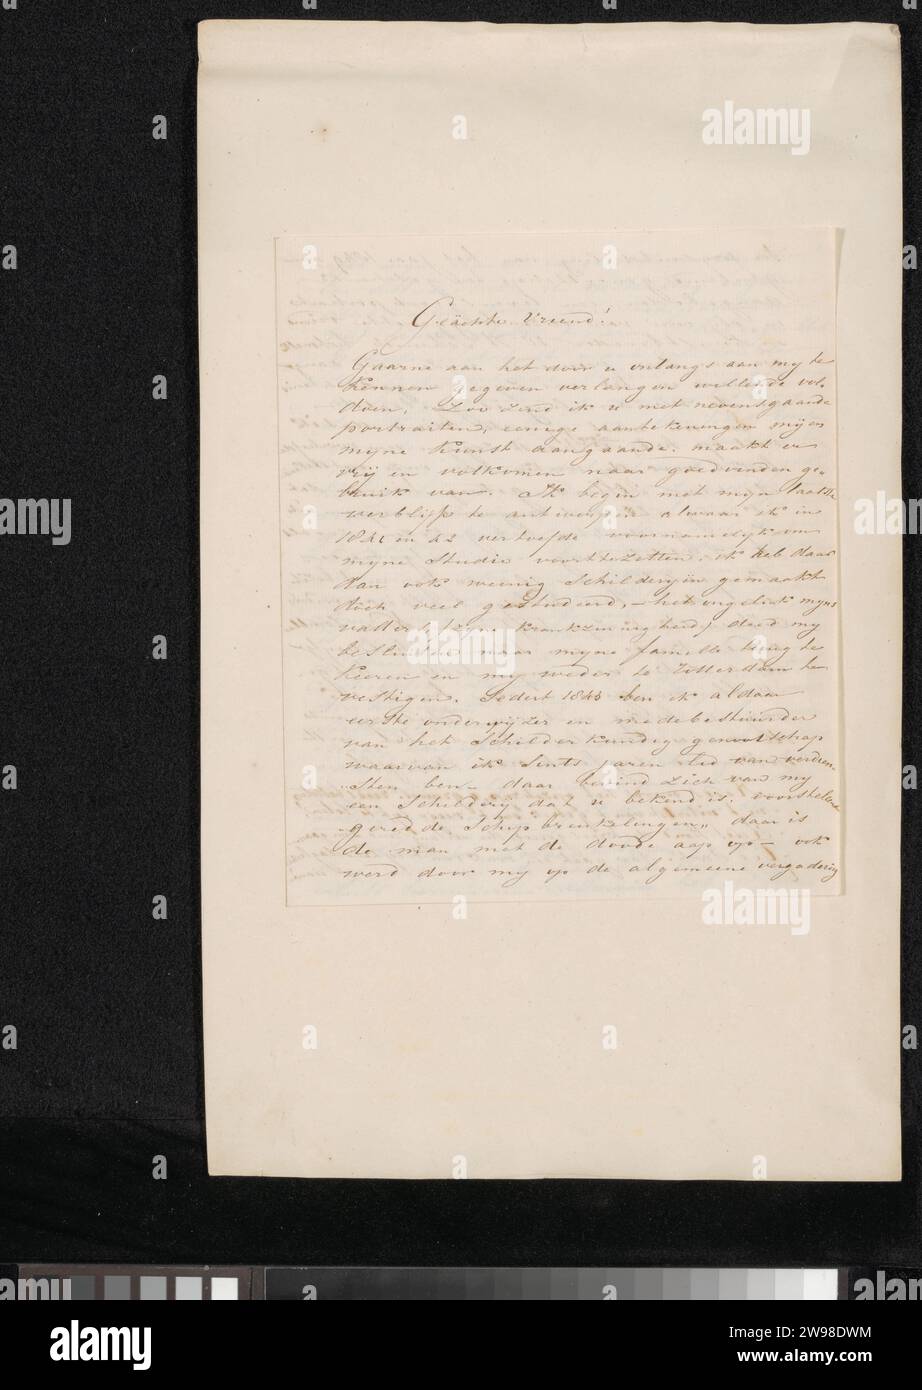 Geächte Vriend!
Gaarne aan het door u onlangs aan my te
kennen gegeven verlangen willende vol-
doen, Zoo zend ik u met nevensgaande
portraiten, eenige aanteekeningen myen
myne kunst aangaande. maakt er
vrij en volkomen naar goedvinden ge-
bruik van. Ik begin met myn laatste
verblijf te antwerpen alwaar ik in
1841 en 42 vertoefde voornamelyk om
myne Studie voorttezetten. ik heb daar
dan ook weinig Schilderyen gemaakt
doch veel gestudeerd, – het ongeluk myns
vaders (zyne krankzinnigheid) deed my
besluiten naar myne familie terug te
keeren en my weder te Rotterdam te
vestigen. Sedert 1843 ben ik aldaar
eerste onderwyzer en medebestuurder
van het Schilderkundig genootschap
waarvan ik Sints jaren lid van verdien-
sten ben – daar bevind zich van my
een Schildery dat u bekend is. voorstelene
geredde Schipbreukelingen„ daar is
de man met de doode aap op – ook
werd door my op de algemeene vergadering
alamy
alamy
Image ID: 2W98DWM
www.alamy.com